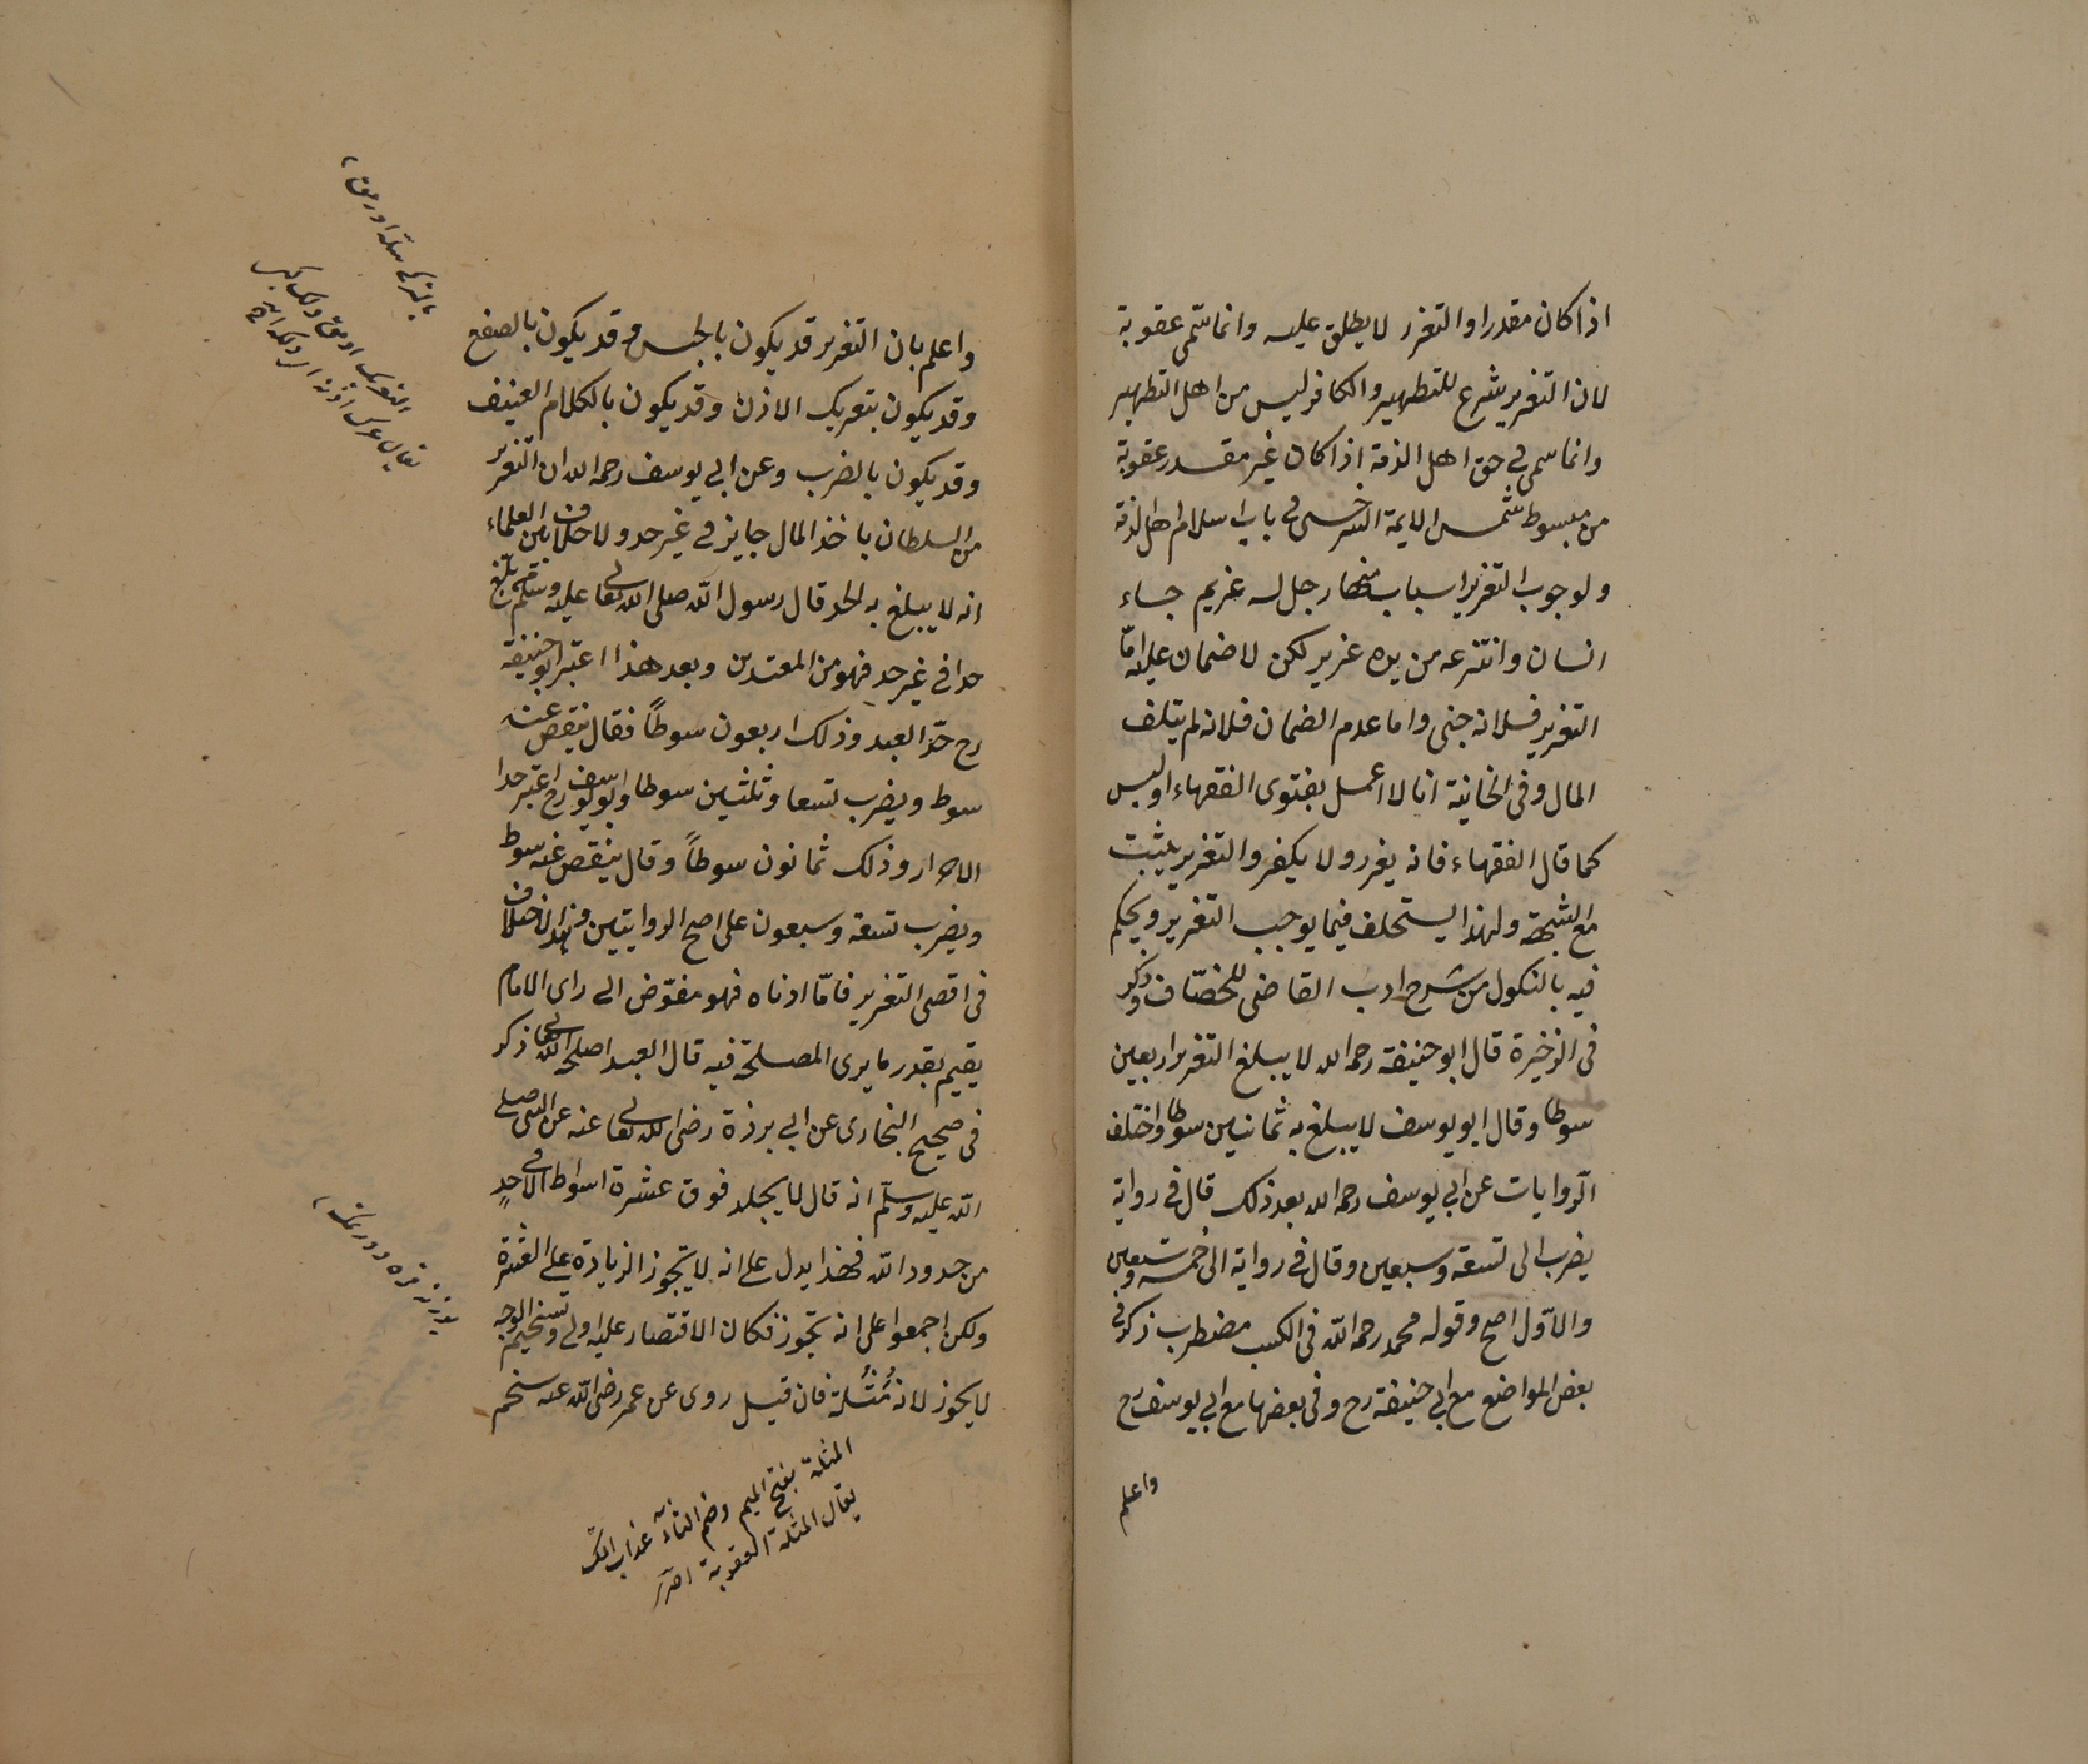 اذا كان مقدرا والتعزير لا يطلق عليه وانما سمّى عقوبة
لان التعزير شرع للتطهير والكافر ليس من اهل التطهير
وانما سمى فى حق اهل الذمة اذا كان غير مقدر عقوبة
من مبسوط شمس الايمة السرخسى فى باب اسلام اهل الذمة
ولوجوب التعزير اسباب منها رجل له غريم جاء
انسان وانتزعه من يده عزير لكن لا ضمان عليه امّا
التعزير فلانه جنى واما عدم الضمان فلانه لم يتلف
المال وفى الخانية انا لا اعمل بفتوى الفقهاء او ليس
كما قال الفقهاء فانه يعزر ولا يكفر والتعزير يثبت
مع الشبهة ولهذا يستحلف فيما يوجب التعزير ويحكم
فيه بالنكول من شرح ادب القاضى للخصّاف وذكر
فى الذخيرة قال ابو حنيفة رحمه الله لا يبلغ التعزير اربعين
سوطا وقال ابو يوسف لا يبلغ به ثمانين سوطا واختلف
الرّوايات عن ابى يوسف رحمه الله بعد ذلك قال فى رواية
يضرب الى تسعة وسبعين وقال فى رواية الى خمسة وسبعين
والاوّل اصح وقوله محمد رحمه الله فى الكتب مضطرب ذكر فى
بعض المواضع مع ابى حنيفة رح وفى بعضها مع ابى يوسف رح
واعلم
واعلم بان التعزير قد يكون بالحبس وقد يكون بالصفع
وقد يكون بتعريك الاذن وقد يكون بالكلام العنيف
وقد يكون بالضرب وعن ابى يوسف رحمه الله ان التعزير
من السلطان باخذ المال جايز فى غير حد ولا خلاف بين العلماء
انه لا يبلغ به الحد قال رسول الله صلى الله تعالى عليه وسلم من بلغ
حدا فى غير حد فهو من المعتدين وبعد هذا اعتبر ابو حنيفة
رح حدّ العبد وذلك اربعون سوطاً فقال ينقص عنه
سوط ويضرب تسعا وثلثين سوطا وابو يوسف رح اعتبر حدا
الاحرار وذلك ثمانون سوطاً وقال ينقص عنه سوط
ويضرب تسعة وسبعون على اصح الروايتين وهذا الاختلاف
فى اقصى التعزير فامّا ادناه فهو مفوّض الى راى الامام
يقيم بقدر ما يرى المصلحة فيه قال العبد اصلحه الله تعالى ذكر
فى صحيح البخارى عن ابى بردة رضى الله تعالى عنه عن النبى صلى
الله عليه وسلّم انه قال لا يجلد فوق عشرة اسواط الا فى حدٍ
من حدود الله فهذا يدل على انه لا يتجوز الزيادة على العشرة
ولكن اجمعوا على انه يجوز فكان الاقتصار عليه اولى وتسخيم الوجه
لا يجوز لانه مُثُلة فان قيل روى عن عمر رضى الله عنه سخم
المثلة بفتح الميم وضم الثاء عذاب
يقال المثلة العقوبة